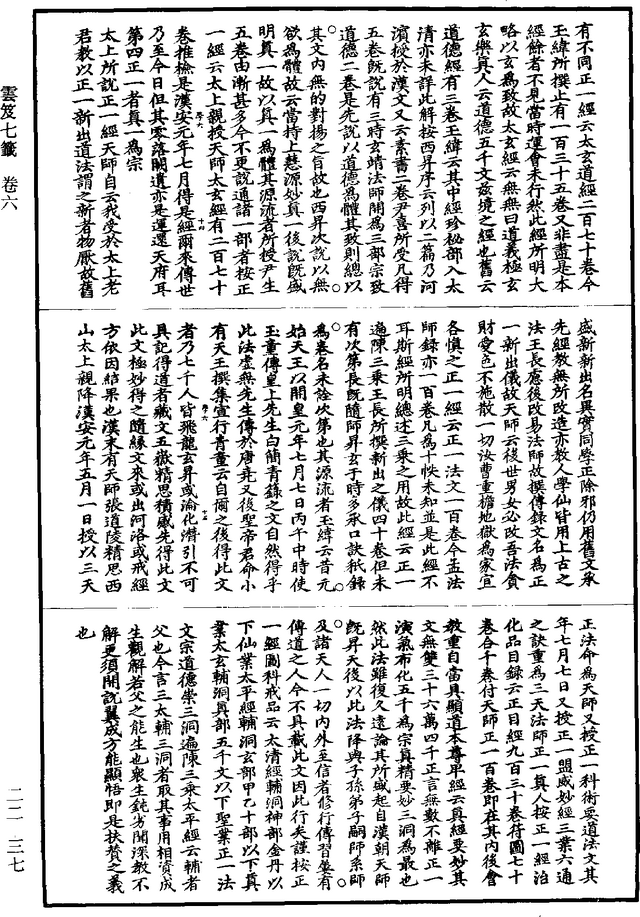 有不同正一經云太玄道經二百七十卷今
王緯所撰止有一百三十五卷又非盡是本
經餘者不見當時運會未行然此經所明大
略以玄為致故太玄經云無無曰道義極玄
玄樂真人云道德五千文玆境之經也舊云
道德經有三卷王緯云其中經珍祕部入太
清亦未詳此解按西昇序云列以二篇乃河
濱授於漢文又云素書二卷尹喜所受凡得
五卷既說有三時玄靖法師開為三部宗致
道德二卷是先說以道德為體其致則總以
其文內無的對揚之旨故也西昇次說以無
欲為體故云當持上慧源妙真一後說既盛
明真一故以真一為體其源流者所授尹生
五卷由漸甚多今不更說道諸一部者按正
一經云太上親授天師太玄經有二百七十
卷推檢是漢安元年七月得是經爾來傳世
乃至今日但其零落闕遺亦是運還天府耳
第四正一者真一為宗
太上所說正一經天師自云我受於太上老
君教以正一新出道法謂之新者物厭故舊
盛新新出名異實同學正除邪仍用舊文承
先經教無所改造亦教人學仙皆用上古之
法王長慮後改易法師故撰傳錄文名為正
一新出儀故天師云後世男女必改吾法貪
財愛色不施散一切汝曹重擔地獄為家宜
各慎之正一經云正一法文一百卷今孟法
師錄亦一百卷凡為十帙未知並是此經不
耳斯經所明總述三乘之用故此經云正一
遍陳三乘王長所撰新出之儀四十卷但未
有次第長既隨師昇玄于時多承口訣秖錄
為卷名未詮次第也其源流者王緯云昔元
始天王以開皇元年七月七日丙午中時使
玉童傳皇上先生白簡青籙之文自然得乎
此法虛無先生傳於唐堯又後聖帝君命小
有天王撰集宣行青童云自爾之後得此文
者乃七千人皆飛龍玄昇或淪化潛引不可
具記得道者藏文五嶽精思積感先得此文
此文極妙得之隨緣文來或出河洛或戒經
方依因結果也漢末有天師張道陵精思西
山太上親降漢安元年五月一日授以三天
正法命為天師又授正一科術要道法文其
年七月七日又授正一盟威妙經三業六通
之訣重為三天法師正一真人按正一經治
化品目錄云正目經九百三十卷符圖七十
卷合千卷付天師正一百卷即在其內後會
教重自當具顯道本尊卑經云真經要妙其
文無雙三十六萬四千正言無數不離正一
演氣布化五千為宗真精要妙三洞為最也
然此法雖復久遠論其所盛起自漢朝天師
既昇天後以此法降與子孫弟子嗣師系師
及諸天人一切內外至信者修行傳習並有
傳道之人今不具載此文因此行矣謹按正
一經圖科戒品云太清經輔洞神部金丹以
下仙業太平經輔洞玄部甲乙十部以下真
業太玄輔洞真部五千文以下聖業正一法
文宗道德崇三洞遍陳三乘太平經云輔者
父也今言三太輔三洞者取其事用相資成
生觀解若父之能生也衆生鈍劣聞深教不
解更須開說翼成方能顯悟即是扶贊之義
也
雲笈七籤 卷六
二二-三七